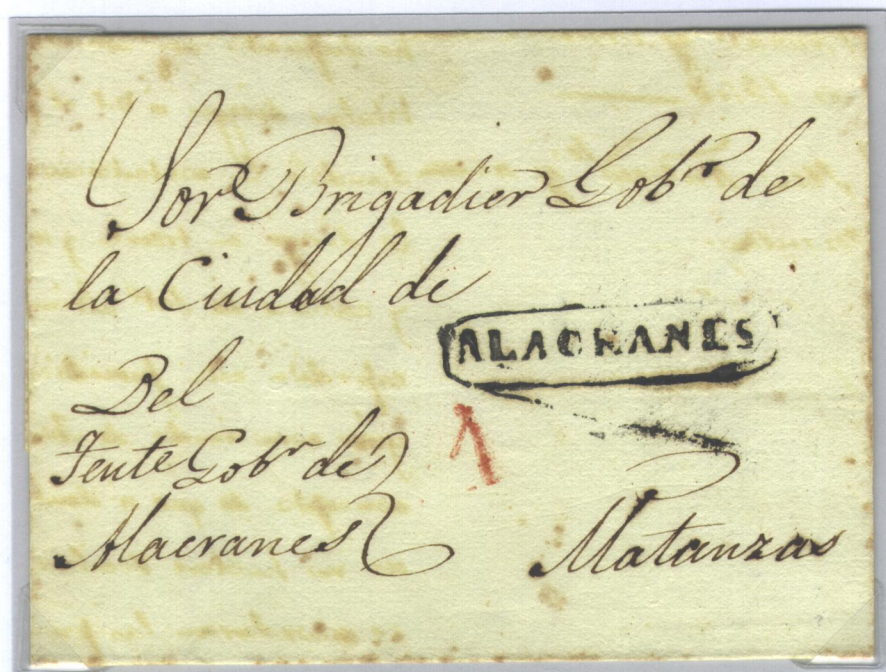 Sor. Brigadier Gobr. de
la Ciudad de
ALACRANES
1
Del
Tente Gobr. de
Alacranes
Matanzas